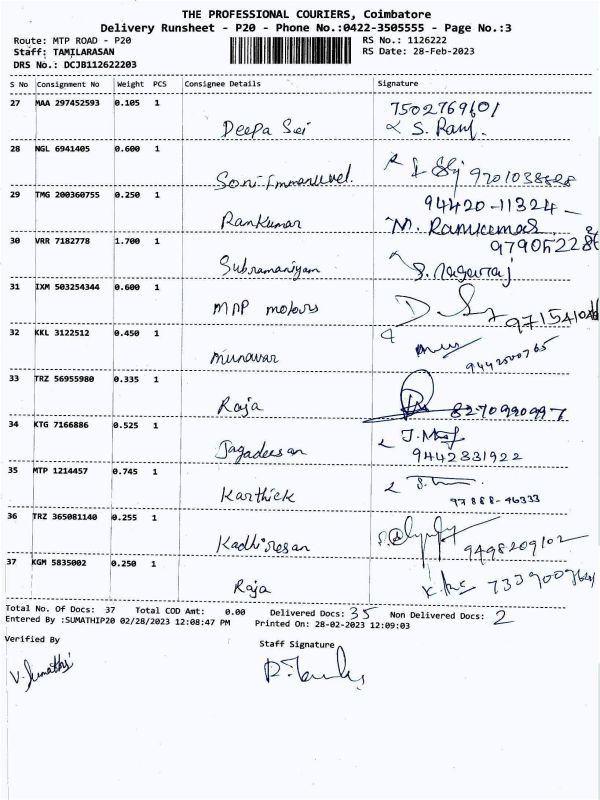 THE PROFESSIONAL COURIERS, Coimbatore
Delivery Runsheet - P20 - Phone No.:0422-3505555 - Page No.:3
Route: MTP ROAD - P20 RS No.: 1126222
Staff: TAMILARASAN RS Date: 28-Feb-2023
DRS No.: DCJB112622203
S No Consignment No Weight PCS Consignee Details Signature
27 MAA 297452593 0.105 1 7502769601
Deepa Sai
28 NGL 6941405 0.600 1
Soni Immanuvel
29 TMG 200360755 0.250 1 94420-11324
Ramkumar M. Ramkumar
30 VRR 7182778 1.700 1
Subramaniyam S. Nagarraj
31 IXM 503254344 0.600 1
MNP motors
32 KKL 3122512 0.450 1
Munawar 9442500765
33 TRZ 56955980 0.335 1
Raja 8270990997
34 KTG 7166886 0.525 1
Jagadeesan 9442331922
35 MTP 1214457 0.745 1
Karthick 97888-46333
36 TRZ 365081140 0.255 1
Kadhiresan 9498209102
37 KGM 5835002 0.250 1
Raja
Total No. Of Docs: 37 Total COD Amt: 0.00 Delivered Docs: 35 Non Delivered Docs: 2
Entered By :SUMATHIP20 02/28/2023 12:08:47 PM Printed On: 28-02-2023 12:09:03
Verified By Staff Signature
V. Sumathi